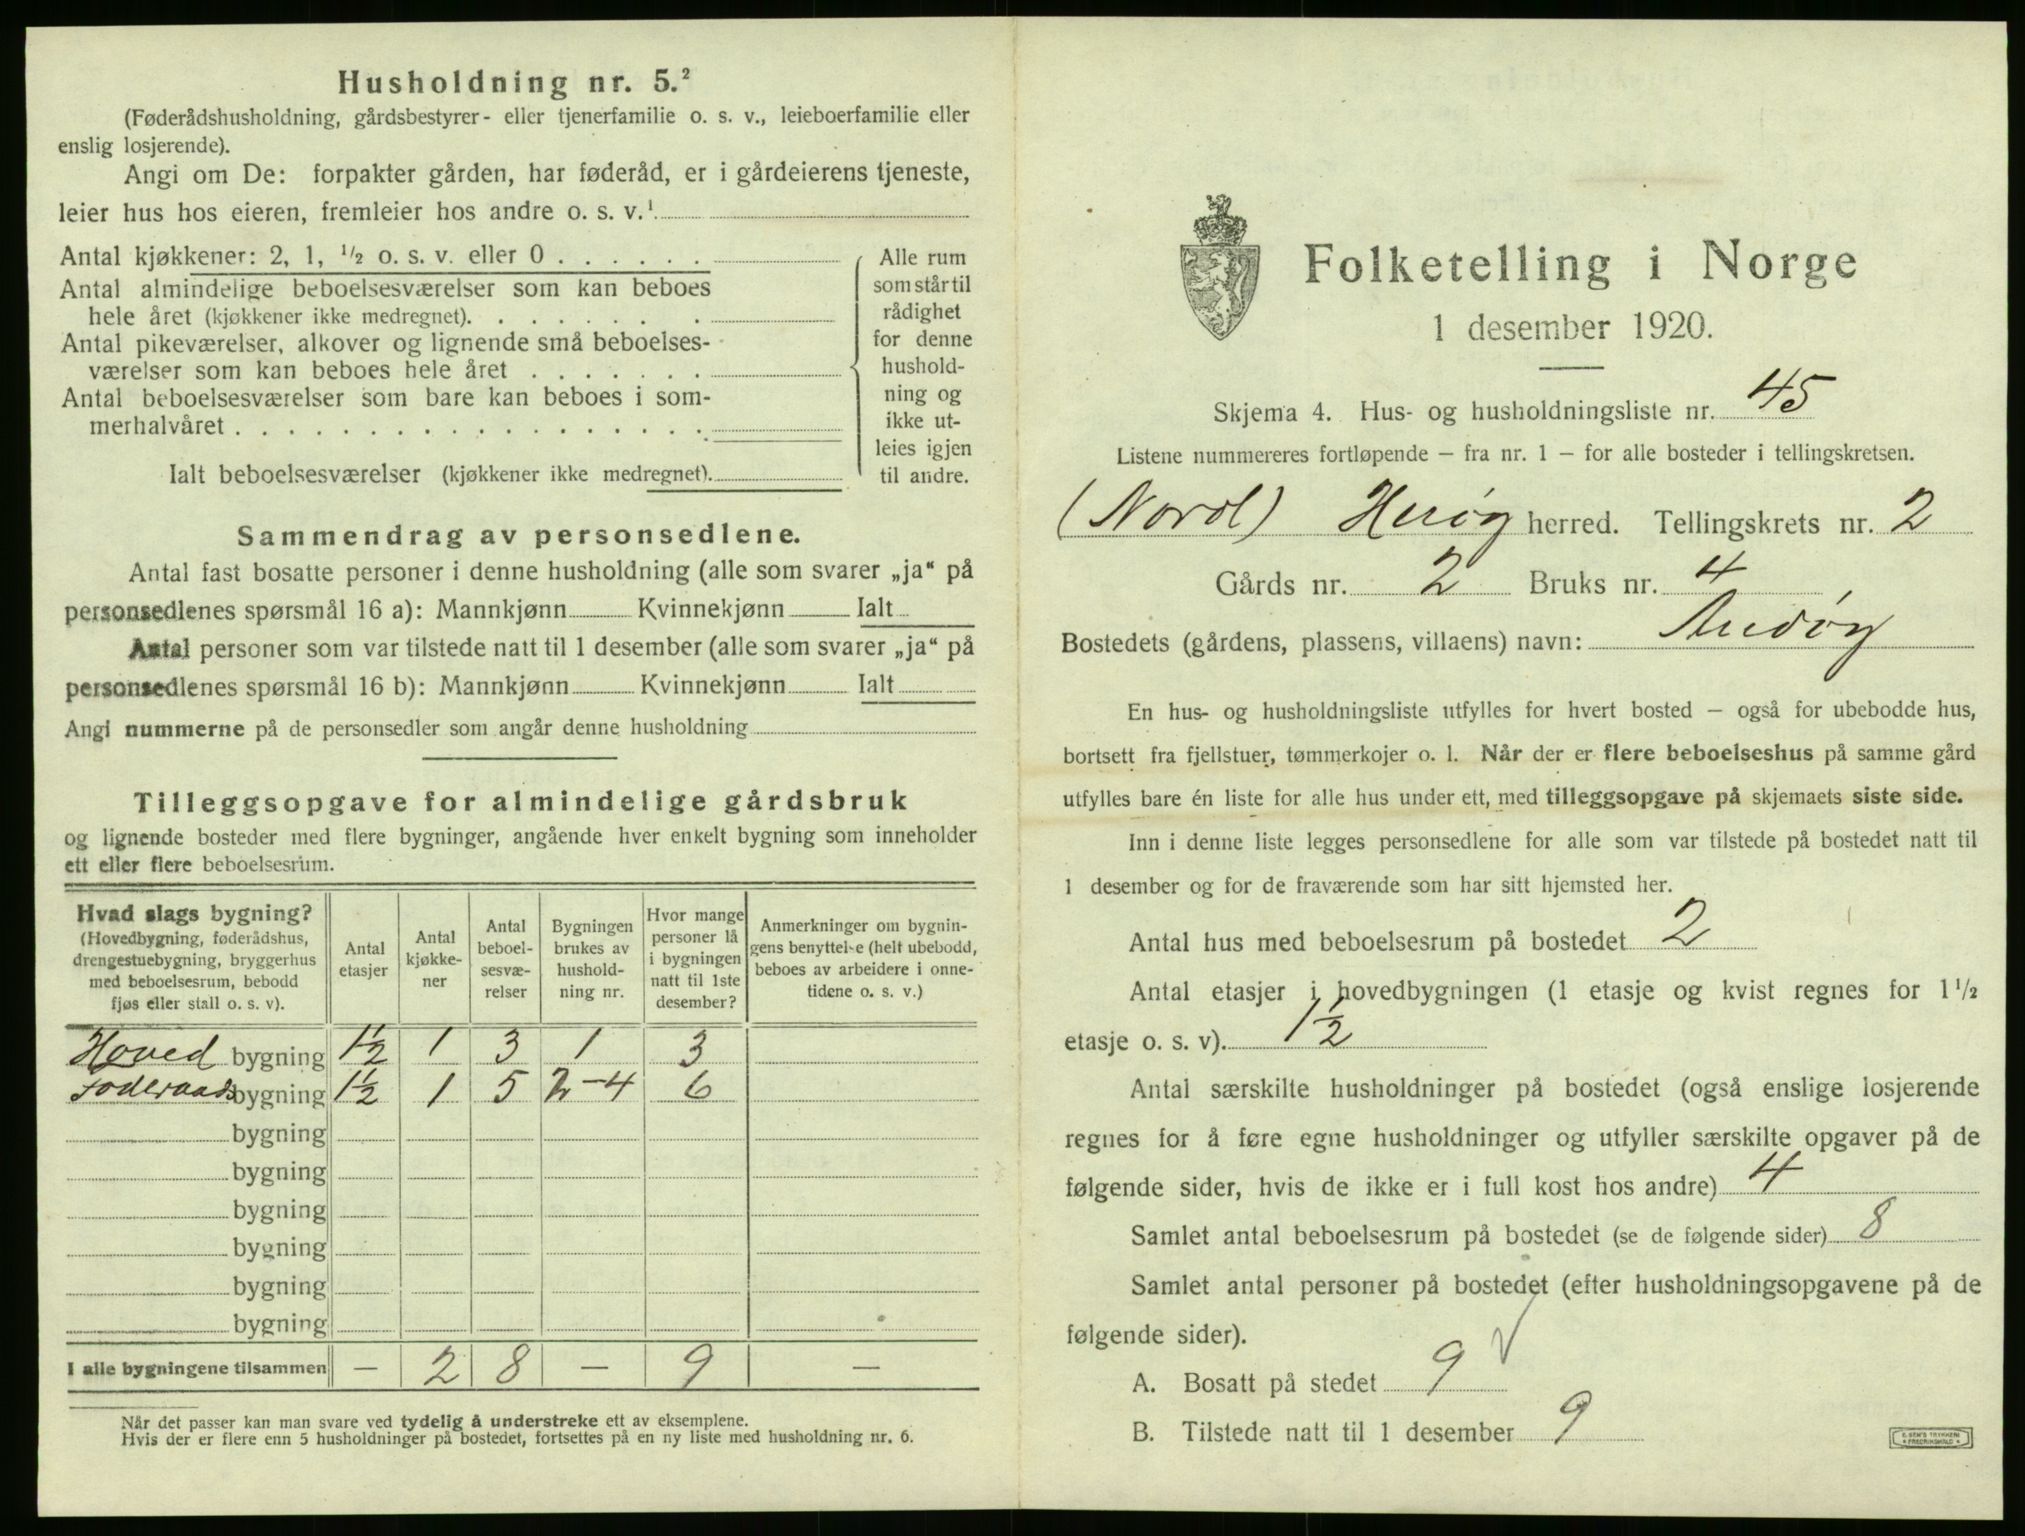 Husholdning nr. 5.²
(Føderådshusholdning, gårdsbestyrer- eller tjenerfamilie o. s. v., leieboerfamilie eller
enslig losjerende).
Angi om De: forpakter gården, har føderåd, er i gårdeierens tjeneste,
leier hus hos eieren, fremleier hos andre o. s. v.¹
Antal kjøkkener: 2, 1, ½ o. s. v. eller 0 . . . . . .
Antal almindelige beboelsesværelser som kan beboes
hele året (kjøkkener ikke medregnet). . . . . . . .
Antal pikeværelser, alkover og lignende små beboelses-
værelser som kan beboes hele året . . . . . . .
Antal beboelsesværelser som bare kan beboes i som-
merhalvåret . . . . . . . . . . . . . . . . . .
Ialt beboelsesværelser (kjøkkener ikke medregnet).
Alle rum
som står til
rådighet
for denne
hushold-
ning og
ikke ut-
leies igjen
til andre.
Sammendrag av personsedlene.
Antal fast bosatte personer i denne husholdning (alle som svarer „ja“ på
personsedlenes spørsmål 16 a): Mannkjønn Kvinnekjønn Ialt
Antal personer som var tilstede natt til 1 desember (alle som svarer „ja“ på
personsedlenes spørsmål 16 b): Mannkjønn Kvinnekjønn Ialt
Angi nummerne på de personsedler som angår denne husholdning
Tilleggsopgave for almindelige gårdsbruk
og lignende bosteder med flere bygninger, angående hver enkelt bygning som inneholder
ett eller flere beboelsesrum.
Hvad slags bygning?
(Hovedbygning, føderådshus,
drengestuebygning, bryggerhus
med beboelsesrum, bebodd
fjøs eller stall o. s. v).
Antal
etasjer
Antal
kjøkke-
ner
Antal
beboel-
sesvæ-
relser
Bygningen
brukes av
hushold-
ning nr.
Hvor mange
personer lå
i bygningen
natt til 1ste
desember?
Anmerkninger om bygnin-
gens benyttelse (helt ubebodd,
beboes av arbeidere i onne-
tidene o. s. v.)
Hoved bygning 1½ 1 3 1 3
Foderaads bygning 1½ 1 5 2-4 6
bygning
bygning
bygning
bygning
bygning
bygning
I alle bygningene tilsammen — 2 8 — 9 —
Når det passer kan man svare ved tydelig å understreke ett av eksemplene.
Hvis der er flere enn 5 husholdninger på bostedet, fortsettes på en ny liste med husholdning nr. 6.
Folketelling i Norge
1 desember 1920.
Skjema 4. Hus- og husholdningsliste nr. 45
Listene nummereres fortløpende – fra nr. 1 – for alle bosteder i tellingskretsen.
(Nordl) Herøy herred. Tellingskrets nr. 2
Gårds nr. 2 Bruks nr. 4
Bostedets (gårdens, plassens, villaens) navn: Andøy
En hus- og husholdningsliste utfylles for hvert bosted – også for ubebodde hus,
bortsett fra fjellstuer, tømmerkojer o. l. Når der er flere beboelseshus på samme gård
utfylles bare én liste for alle hus under ett, med tilleggsopgave på skjemaets siste side.
Inn i denne liste legges personsedlene for alle som var tilstede på bostedet natt til
1 desember og for de fraværende som har sitt hjemsted her.
Antal hus med beboelsesrum på bostedet 2
Antal etasjer i hovedbygningen (1 etasje og kvist regnes for 1½
etasje o. s. v). 1½
Antal særskilte husholdninger på bostedet (også enslige losjerende
regnes for å føre egne husholdninger og utfyller særskilte opgaver på de
følgende sider, hvis de ikke er i full kost hos andre) 4
Samlet antal beboelsesrum på bostedet (se de følgende sider) 8
Samlet antal personer på bostedet (efter husholdningsopgavene på de
følgende sider).
A. Bosatt på stedet 9 √
B. Tilstede natt til 1 desember 9